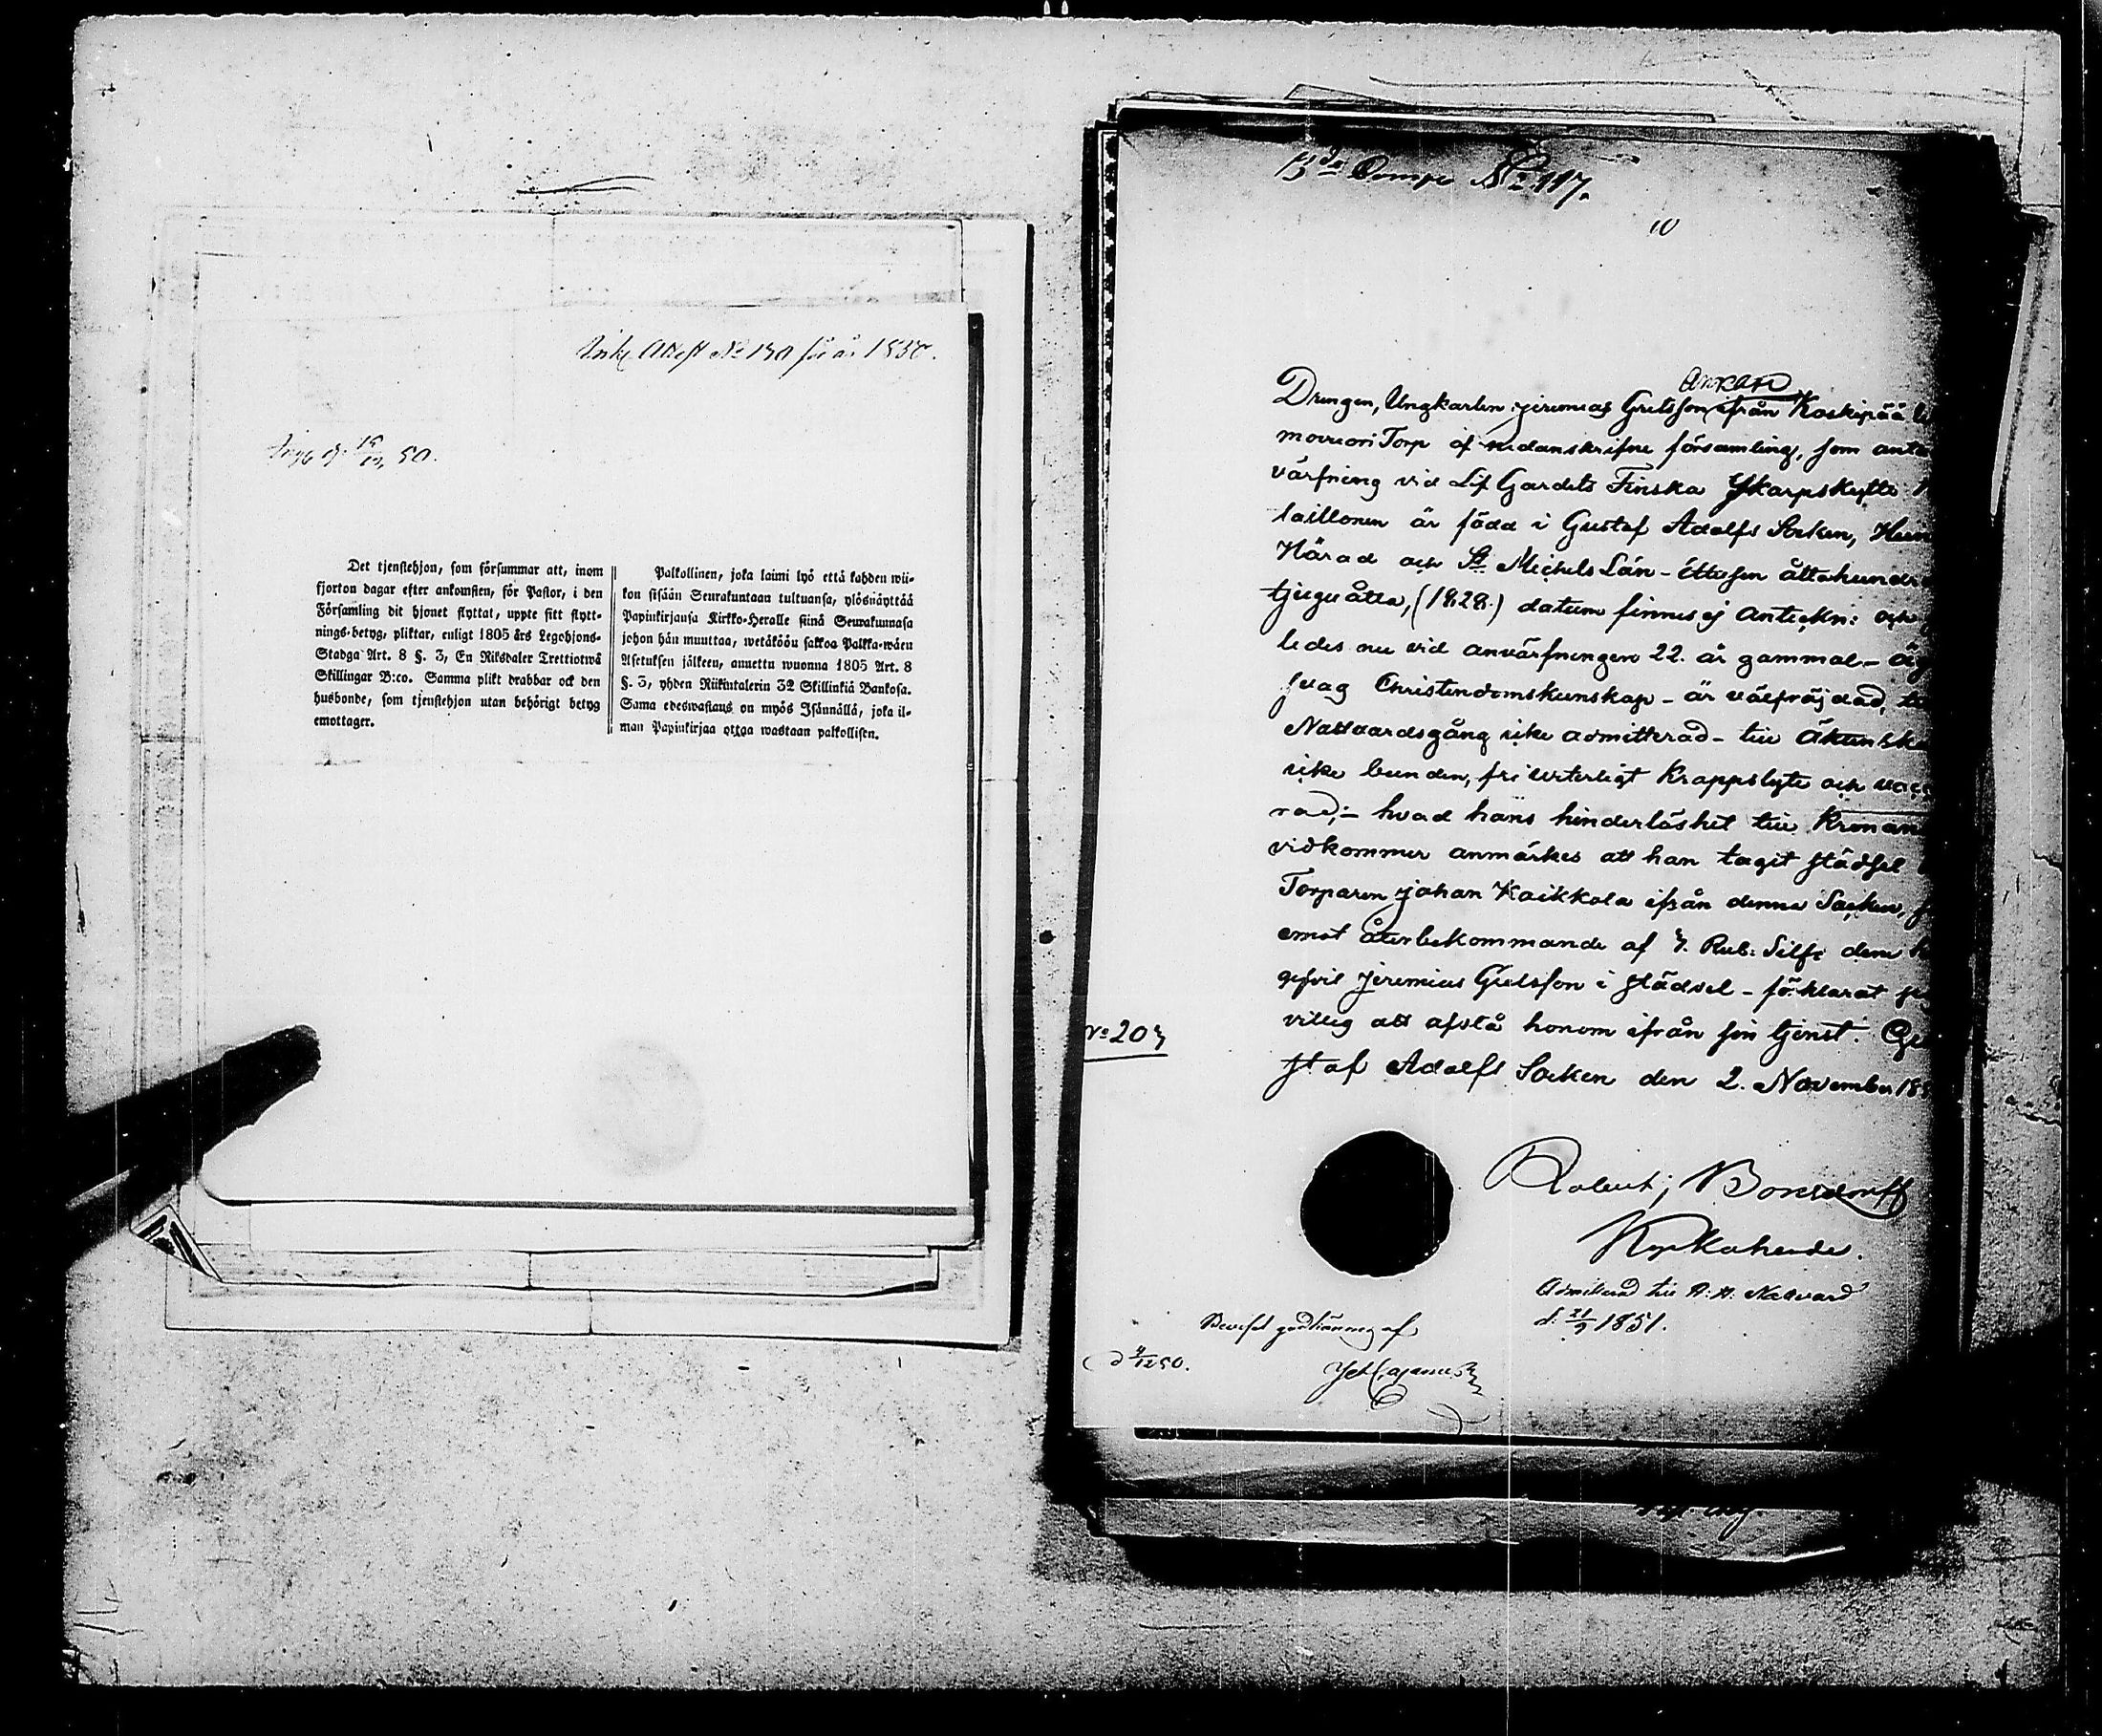 Attest No 130 för år 1850.
50.
Det tjenstehjon, som försummar att, inom
fjorton dagar efter ankomsten, för Pastor, i den
Församling dit hjonet flyttat, uppte sitt flytt-
nings-betyg, pliktar, enligt 1805 års Legohjons-
Stadga Art. 8 §. 3, En Riksdaler Trettiotwå
Skillingar B:co. Samma plikt drabbar ock den
husbonde, som tjenstehjon utan behörigt betyg
emottager.
Palkollinen, joka laimi lyö että kahden wii-
kon sisään Seurakuntaan tultuansa, ylösnäyttää
Papinkirjansa Kirkko-Herralle siinä Seurakunnasa
johon hän muuttaa, wetäköön sakkoa Palkka-wäen
Asetuksen jälkeen, annettu wuonna 1805 Art. 8
§. 3, yhden Riikintalerin 32 Skillinkiä Bankosa.
Sama edeswastaus on myös Isännällä, joka il-
man Papinkirjaa ottaa wastaan palkollisen.
3dje Comp No 117.
10
Drengen, Ungkarlen Jeremias Gretsson ifrån Koskipää
Torp af nedanskrifne församling, som anta
värfning vid Lif Gardets Finska Skarpskytte
taillonen är född i Gustaf Adolfs Socken,
Härad och St Michels Län - ettusen åttahundra
tjuguåtta, (1828.) datum finnes ej anteckn: och
ledes nu vid anvärfningen 22. år gammal - äg
svag Christendomskunskap - är välfräjdad,
Nattvardsgång icke admitterad - till äktenska
icke bunden, fri ifrån kroppslyte och vacc
rad; - hvad hans hinderlöshet till Kronan
vidkommer anmärkes att han tagit städsel
Torparen Johan Kaikkola ifrån denna Socken,
emot återbekommande af 3. Rub. Silfr dem
Jeremias Gretsson i städsel - förklarat
villig att afstå honom ifrån sin tjenst. Gu
staf Adolfs Socken den 2. November 18
No 203
Robert; Bonsdorff
Kyrkoherde.
Admitterad till H. H. Nattvard
d. 21/9 1851.
Beviset godkännes af